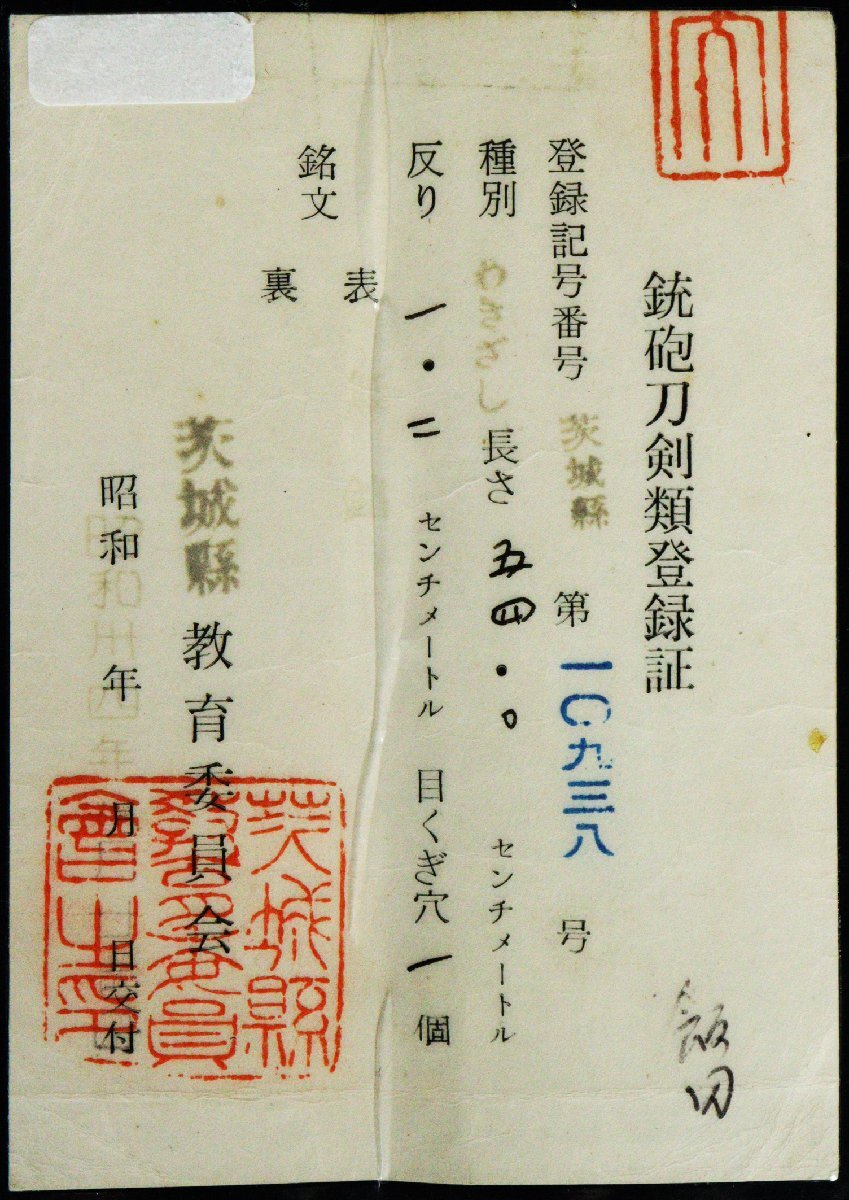 銃砲刀剣類登録証
飯田
登録記号番号 茨城縣 第一〇九三八号
種別 わきざし 長さ 五四・〇 センチメートル
反り 一・二 センチメートル 目くぎ穴 一 個
銘文
表
裏
茨城縣教育委員会
昭和 年 月 日交付
昭和卅四年
茨城縣
教育委員
會之印